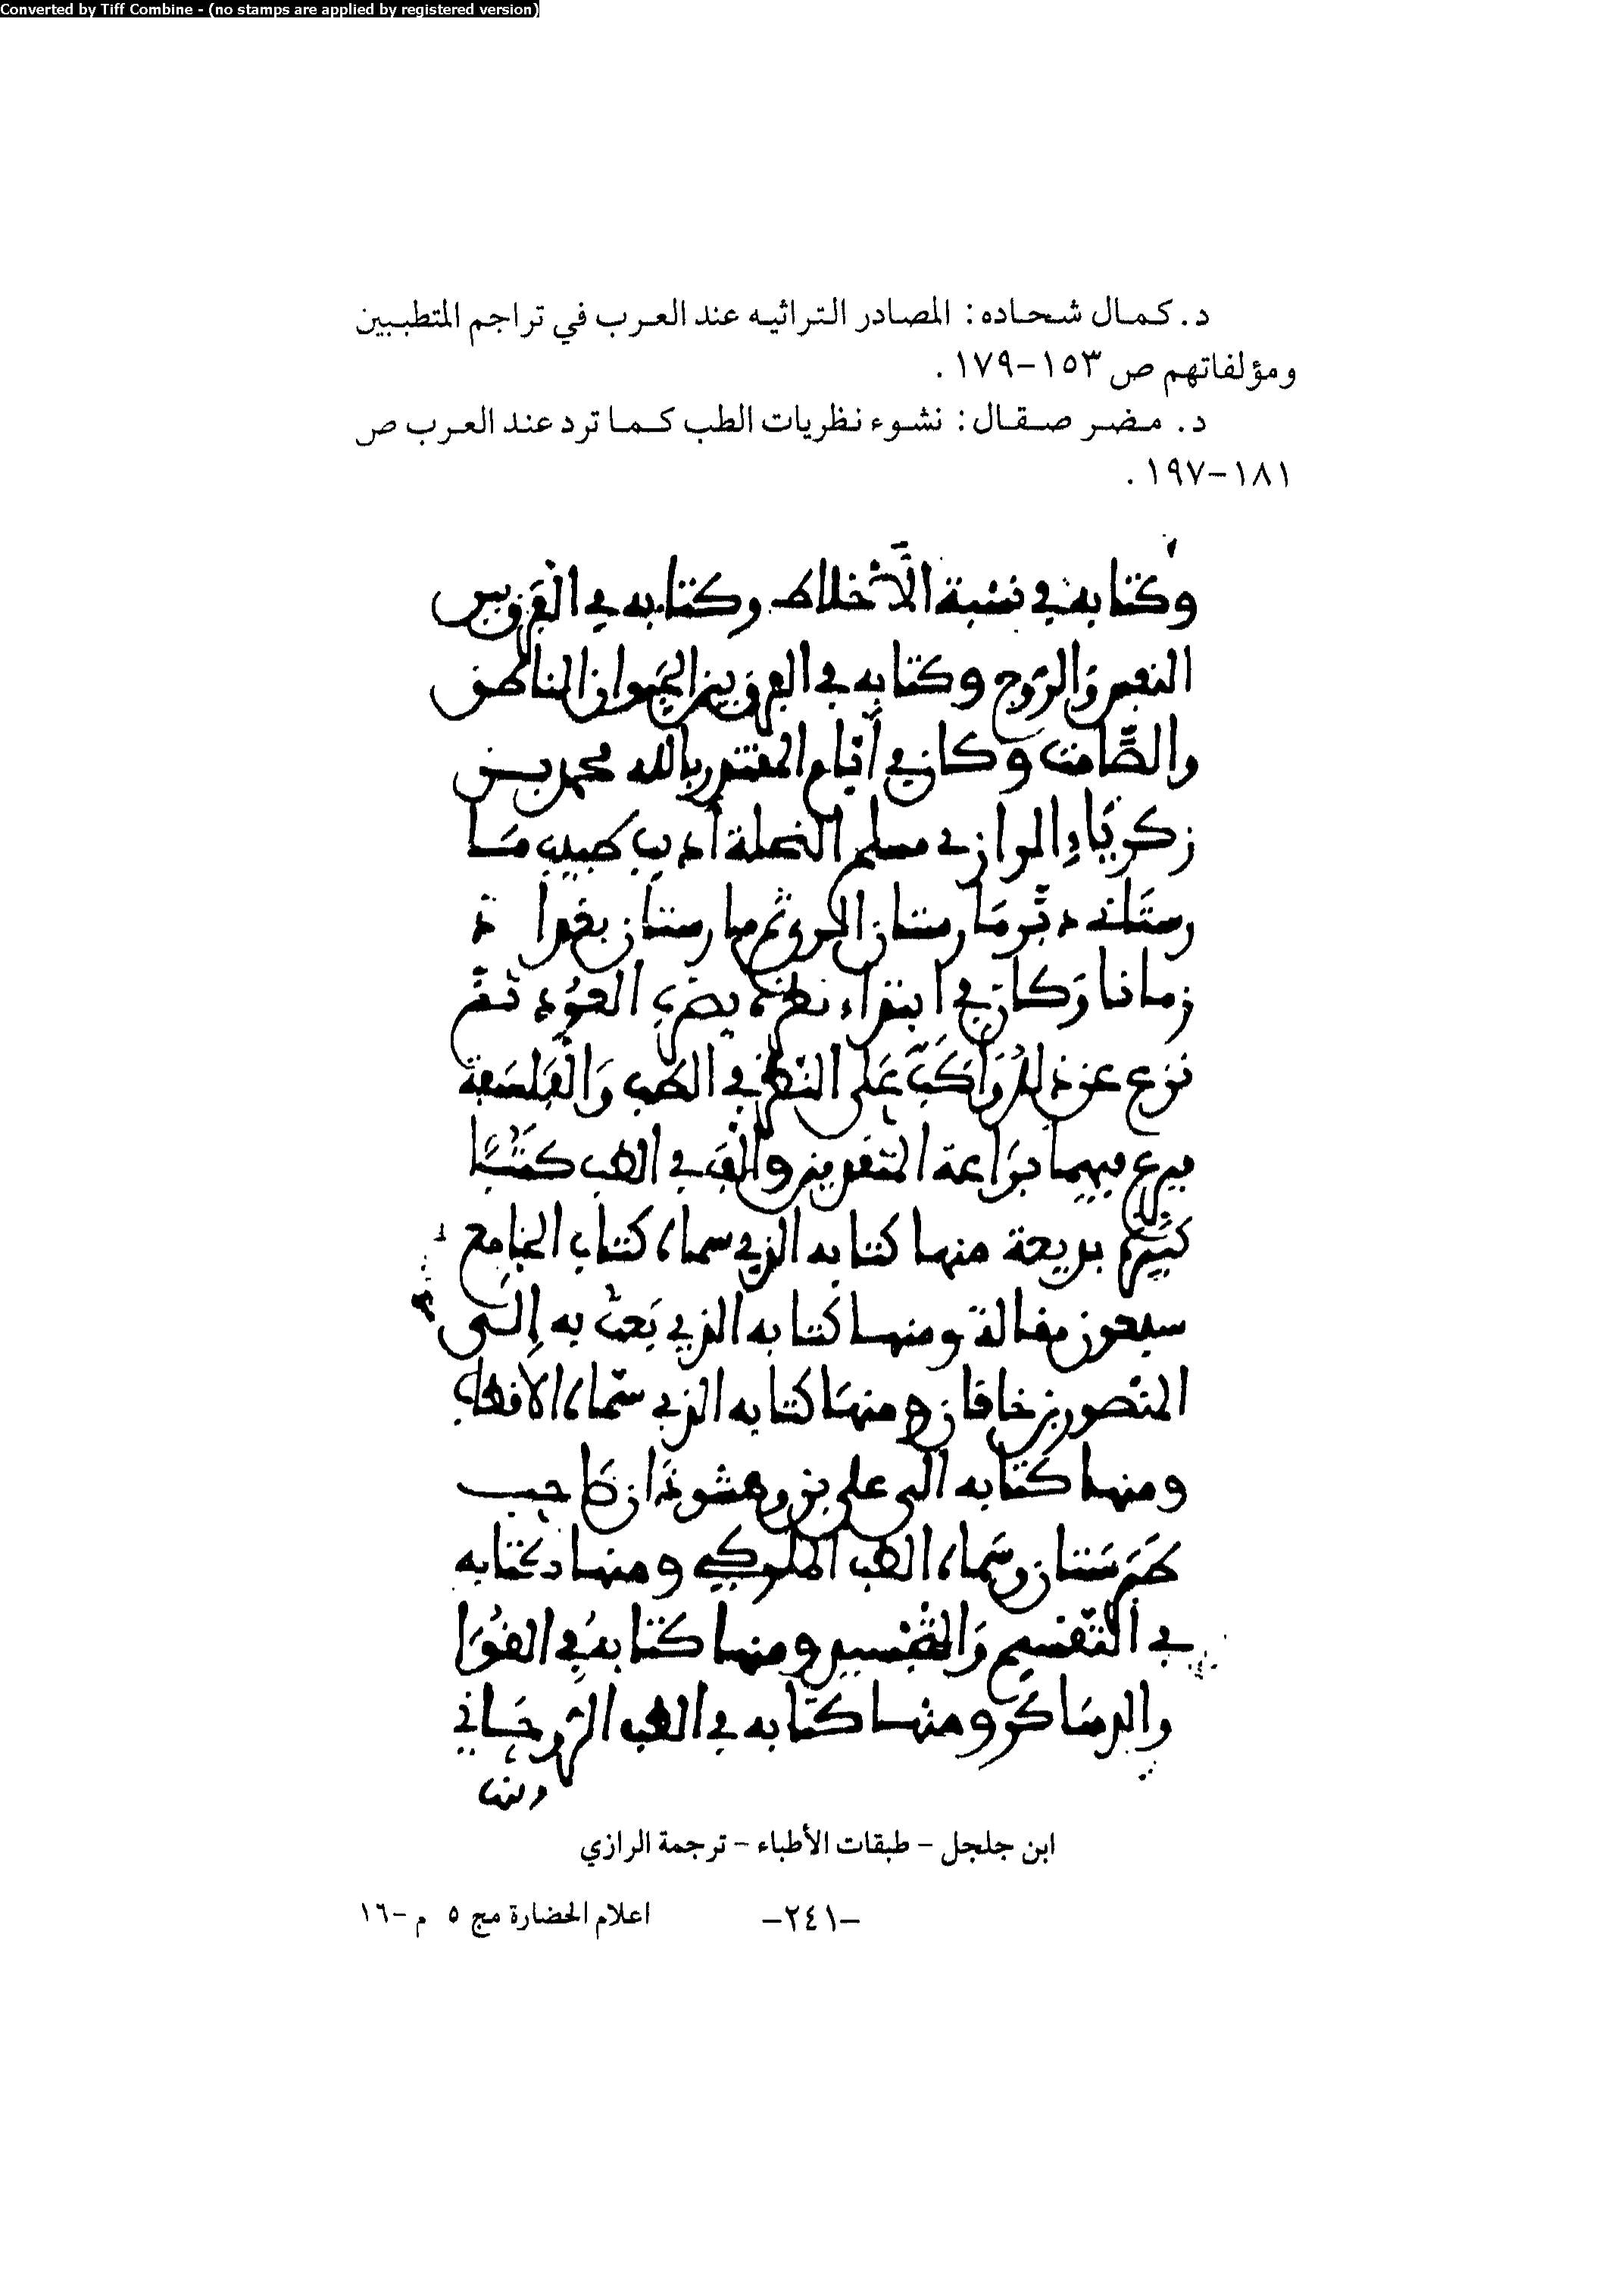 Converted by Tiff Combine - (no stamps are applied by registered version)
د. كمال شحاده: المصادر التراثيه عند العرب في تراجم المتطببين
ومؤلفاتهم ص ١٥٣-١٧٩.
د. مضر صقال: نشوء نظريات الطب كما ترد عند العرب ص
١٨١-١٩٧.
وكتابه في نسبة الأخلاط وكتابه في الفرق بين
النفس والروح وكتابه في الفرق بين الحيوان الناطق
والصَّامت وكان في أيام المقتدر بالله محمد بن
زكرياء الرازي مسلم النحلة أديب طبيب ما
رستاني دبّر مارستان الري ثم مارستان بغداد
زمانا وكان في ابتداء نظره يضرب العود ثم
نزع عن ذلك وأكبّ على النظر في الطب والفلسفة
فبرع فيهما براعة المتقدمين وألف في الطب كتبا
كثيرة بديعة منها كتابه الذي سماه كتاب الجامع
سبعون مقالة ومنها كتابه الذي بعث به إلى
المنصور بن خاقان ومنها كتابه الذي سمّاه الأقطاب
ومنها كتابه إلى علي بن وهشوذان صاحب
طبرستان وسماه الطب الملوكي ومنها كتابه
في التقسيم والتشجير ومنها كتابه في
ومنها كتابه في الطب الروحاني
ابن جلجل - طبقات الأطباء - ترجمة الرازي
-٢٤١-
اعلام الحضارة مج ٥ م -١٦